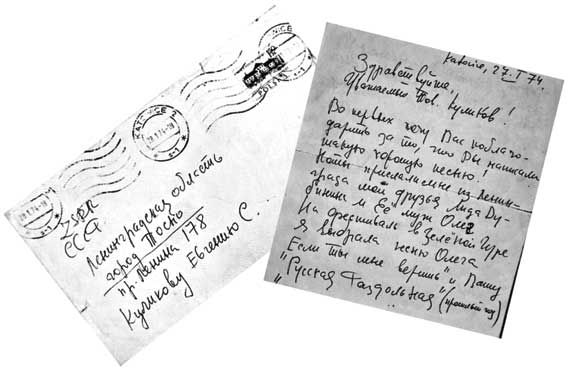 KATOWICE
28.1.74-18
ZSRR
СССР
Ленинградская область
город Тосно
пр. Ленина 178
Куликову Евгению С.
Katowice, 27.I 74.
Здравствуйте,
Уважаемый Тов. Куликов!
Во первых хочу Вас поблаго-
дарить за то, что Вы написали
такую хорошую песню!
Ноты прислали мне из Ленин-
града мои друзья Лида Ду-
бинины и Её муж Олег
На фестиваль в Зелёной Гуре
Я выбрала песню Олега
"Если ты мне веришь" и Вашу
"Русская Раздольная" (прошлый год)